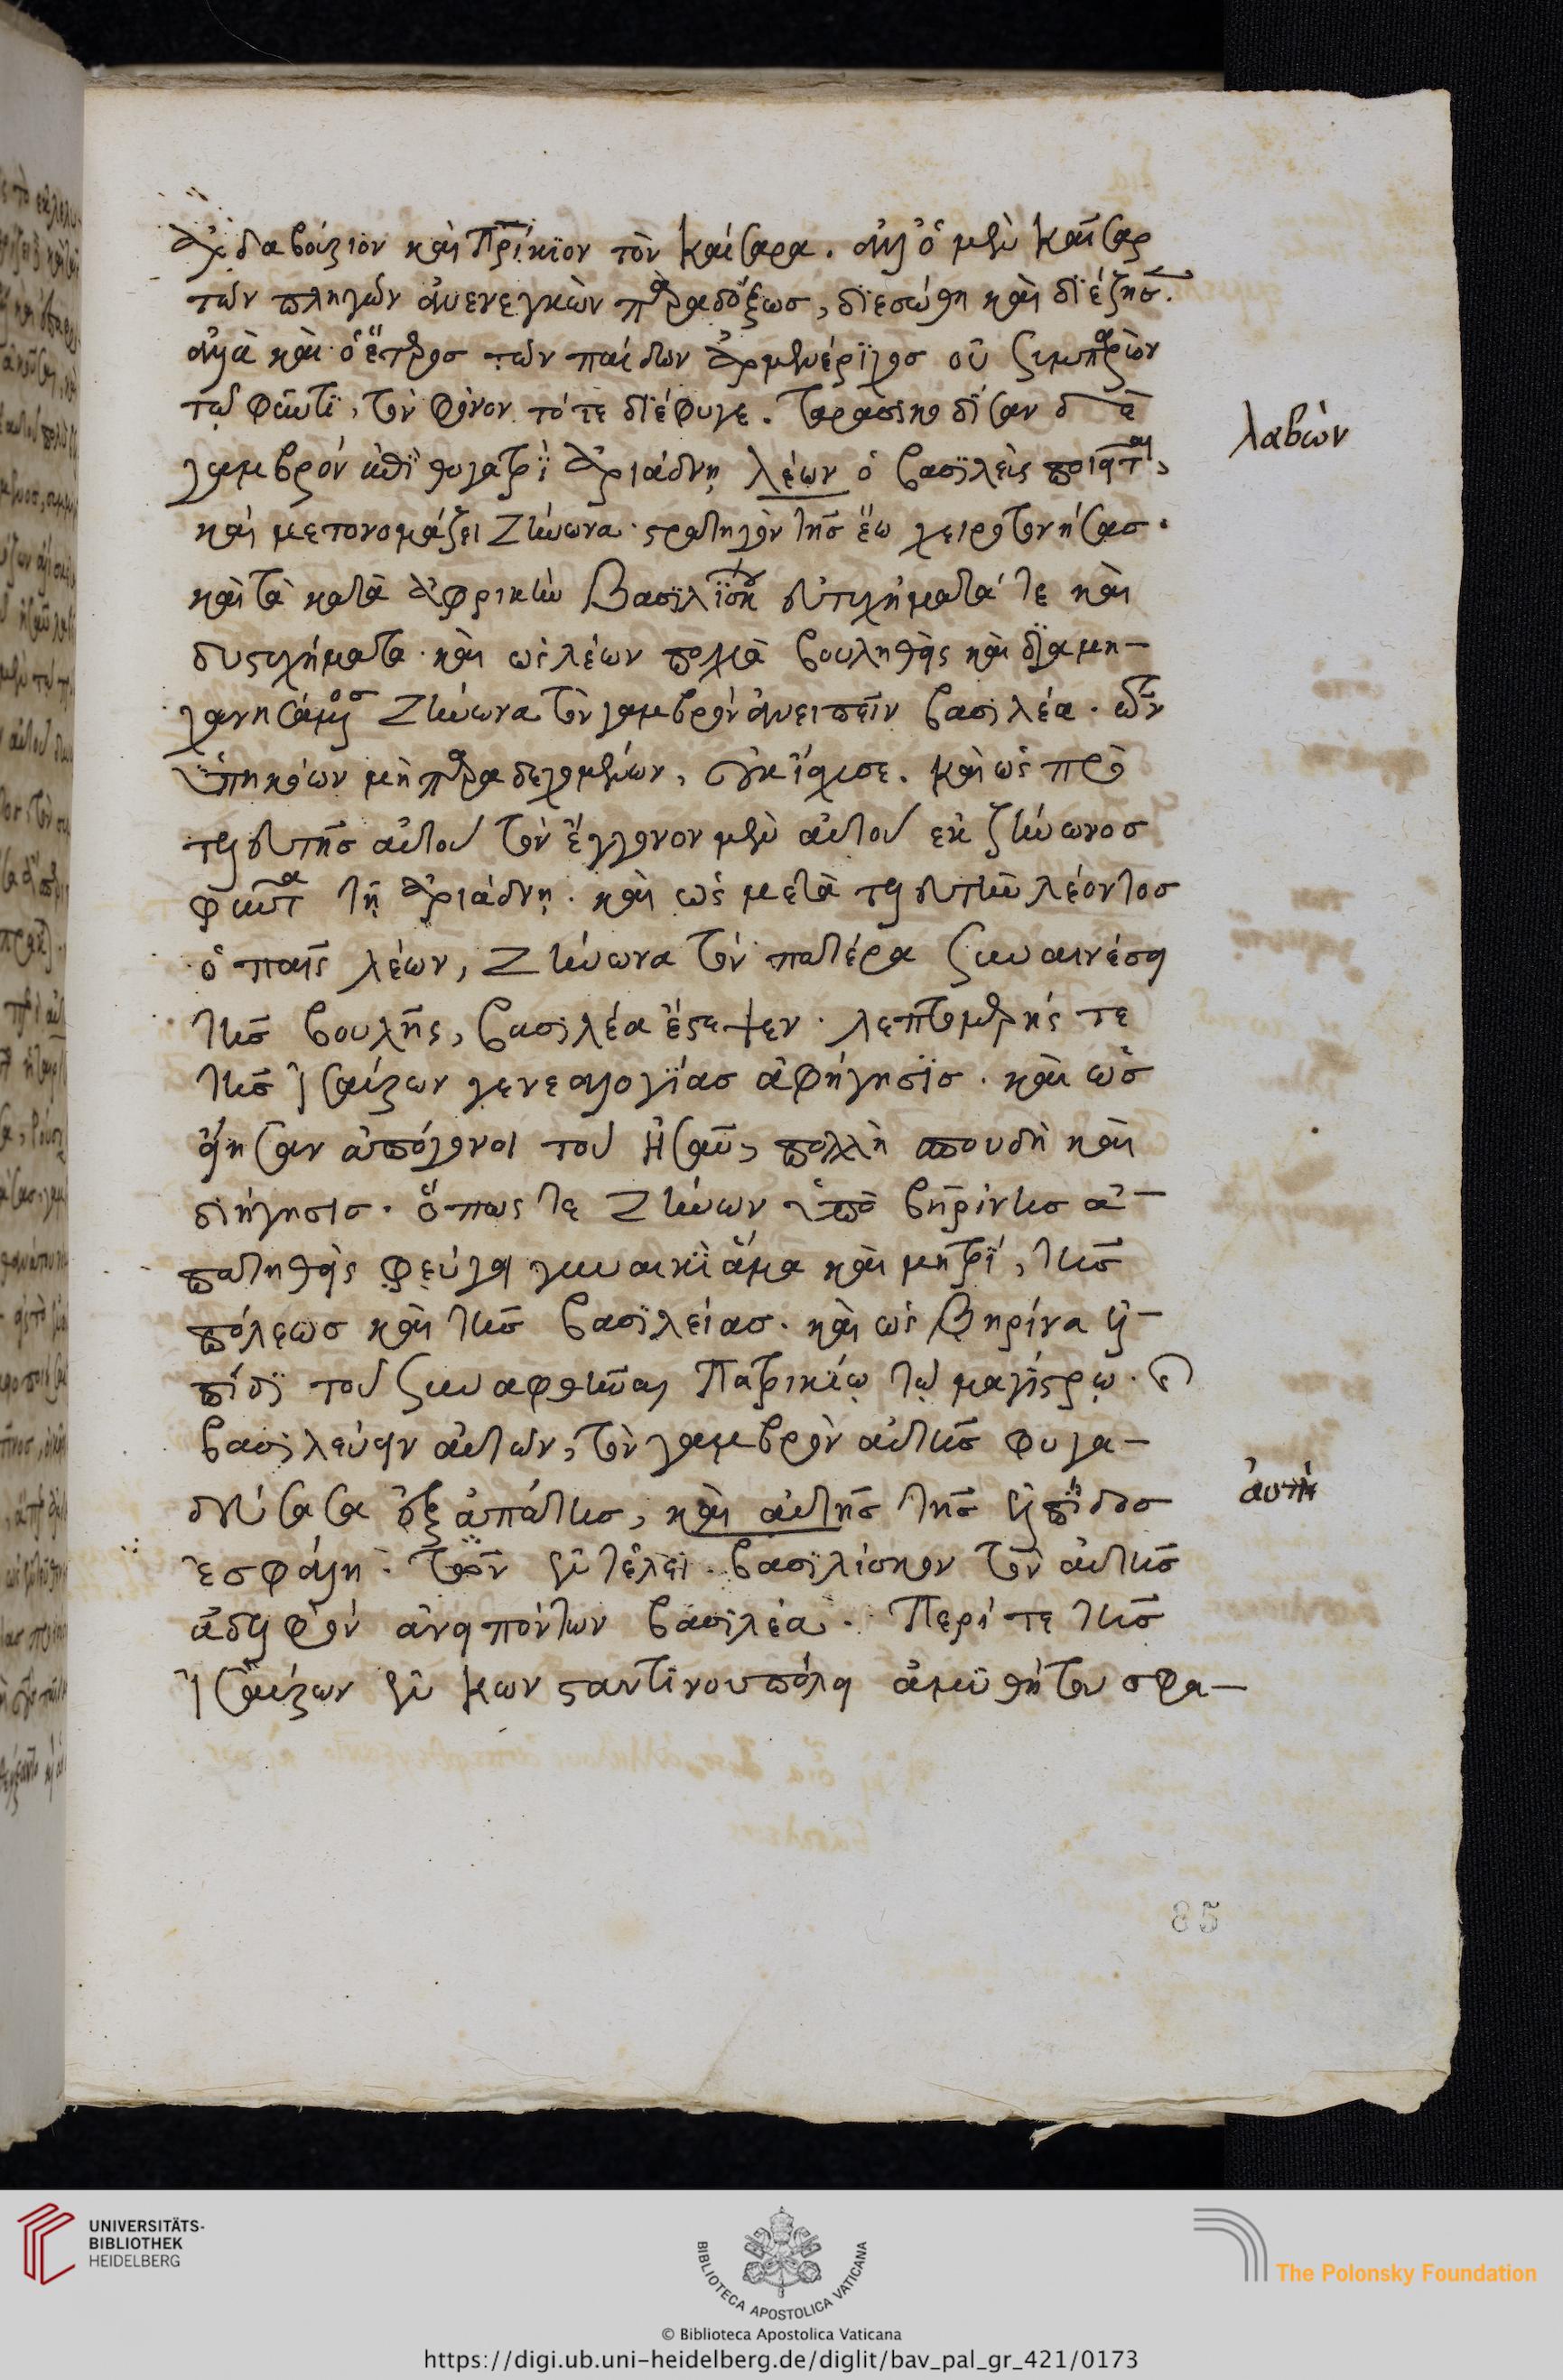 Ἀρδαβούριον καὶ Πατρίκιον τὸν καίσαρα. ἀλλ' ὁ μὲν καῖσαρ
τῶν πληγῶν ἀνενεγκὼν παραδόξως, διεσώθη καὶ διέζησ.
ἀλλὰ καὶ ὁ ἕτερος τῶν παίδων Ἀρμενέριχος οὐ συμπαρὼν
τῷ φύντι, τὸν φόνον τότε διέφυγε. Ταρασικοδίσαν δὲ
λαβών
γαμβρὸν ἐπὶ θυγατρὶ Ἀριάδνῃ λέων ὁ βασιλεὺς ποιεῖται,
καὶ μετονομάζει Ζήνωνα. στρατηγὸν τῆς ἕω χειροτονήσας.
καὶ τὰ κατὰ Ἀφρικὴν Βασιλίσκου εὐτυχήματά τε καὶ
δυστυχήματα. καὶ ὡς λέων πολλὰ βουληθεὶς καὶ διαμη-
χανησάμενος Ζήνωνα τὸν γαμβρὸν ἀνειπεῖν βασιλέα. τῶν
ὑπηκόων μὴ παραδεχομένων, οὐκ ἴσχυσε. καὶ ὡς πρὸ
τελευτῆς αὐτοῦ τὸν ἔγγονον μὲν αὐτοῦ ἐκ ζήνωνος
φύντα τῇ Ἀριάδνῃ. καὶ ὡς μετὰ τελευτὴν λέοντος
ὁ παῖς λέων, Ζήνωνα τὸν πατέρα συναινέσει
τῆς βουλῆς, βασιλέα ἔστεψεν. λεπτομερής τε
τῆς Ἰσαύρων γενεαλογίας ἀφήγησις. καὶ ὡς
εἴησαν ἀπόγονοι τοῦ Ἠσαῦ, πολλὴ σπουδὴ καὶ
διήγησις. ὅπως τε Ζήνων ὑπὸ βηρίνης ἀ-
πατηθεὶς φεύγει γυναικὶ ἅμα καὶ μητρί, τῆς
πόλεως καὶ τῆς βασιλείας. καὶ ὡς Βηρίνα ἐλ-
πίδι τοῦ συναφθῆναι Πατρικίῳ τῷ μαγίστρῳ. καὶ
βασιλεύειν αὐτῶν, τὸν γαμβρὸν αὐτῆς φυγα-
δεύσασα ἐξ ἀπάτης, καὶ αὐτῆς τῆς ἐλπίδος
αὐτὴ
ἐσφάλη. τῶν ἐν τέλει. βασιλίσκον τὸν αὐτῆς
ἀδελφὸν ἀνειπόντων βασιλέα. Περί τε τῆς
Ἰσαύρων ἐν κωνσταντινουπόλει ἀμυθήτου σφα-
85
UNIVERSITÄTS-
BIBLIOTHEK
HEIDELBERG
BIBLIOTECA APOSTOLICA VATICANA
The Polonsky Foundation
© Biblioteca Apostolica Vaticana
https://digi.ub.uni-heidelberg.de/diglit/bav_pal_gr_421/0173